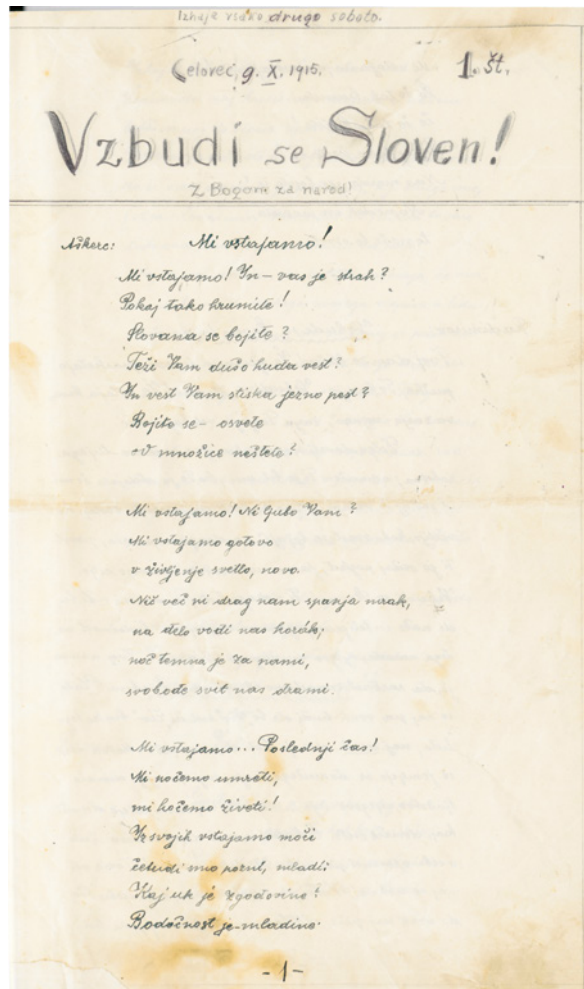 Izhaja vsako drugo soboto.
Celovec, 9. X. 1915.
1. št.
Vzbudi se Sloven!
Z Bogom za narod!
Aškerc:
Mi vstajamo!
Mi vstajamo! In – vas je strah?
Pokaj tako hrumite!
Slovana se bojite?
Teži Vam dušo huda vest?
In vest Vam stiska jezno pest?
Bojite se – osvete
množice neštete?
Mi vstajamo! Ni ljubo Vam?
Mi vstajamo gotovo
v življenje svetlo, novo.
Nič več ni drag nam spanja mrak,
na delo vodi nas korák;
noč temna je za nami,
svobode svit nas drami.
Mi vstajamo... Poslednji čas!
Mi nočemo umreti,
mi hočemo živeti!
Iz svojih vstajamo moči
četudi smo pozni, mladi:
Kaj je zgodovina?
Bodočnost je mladina.
- 1 -